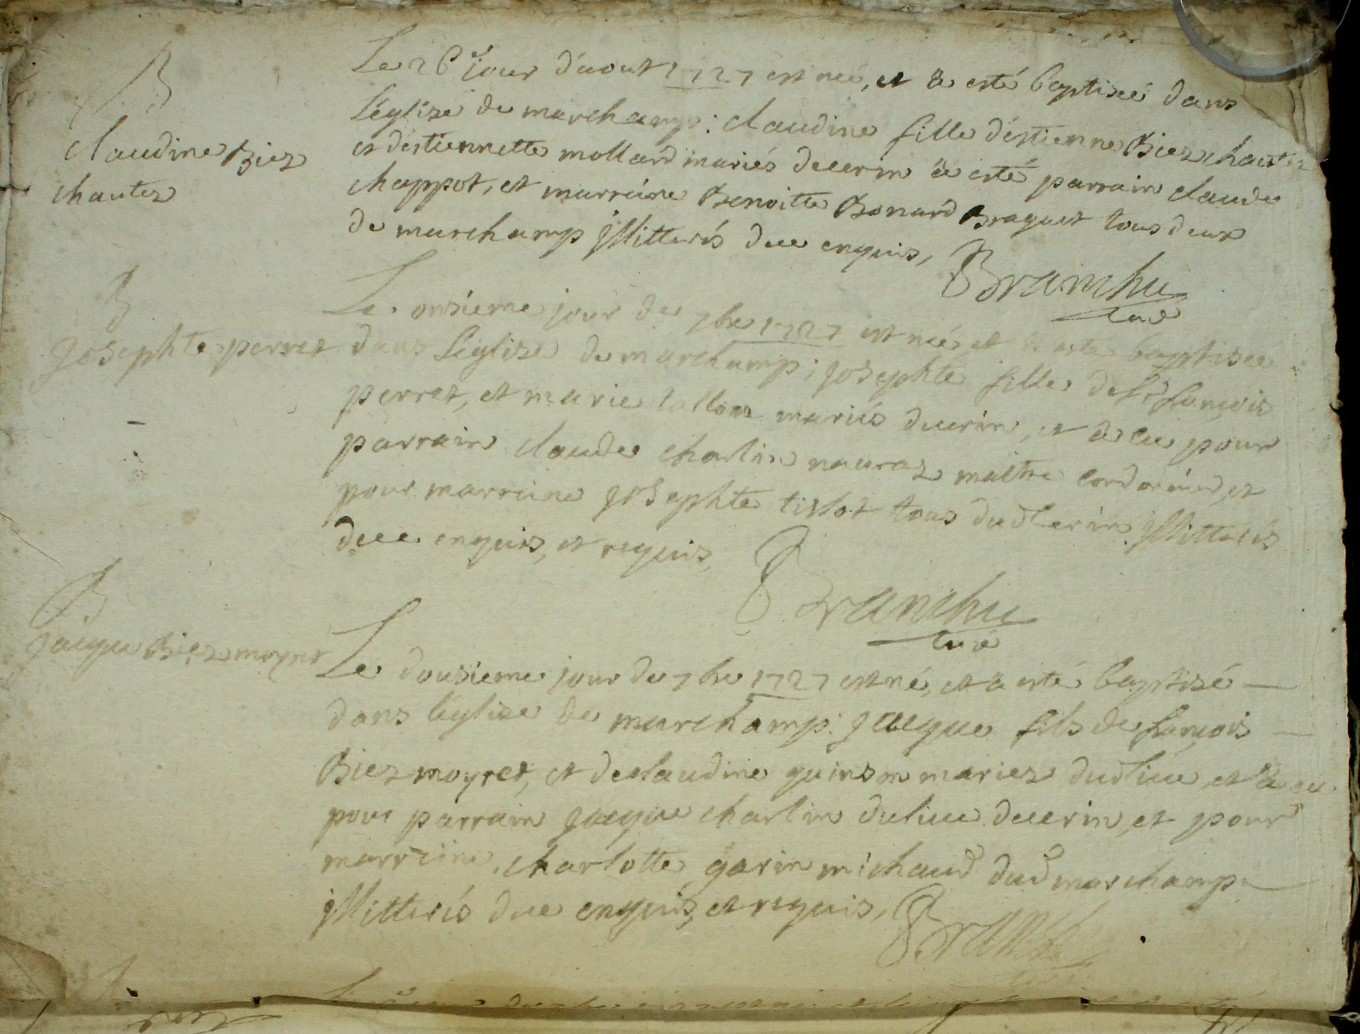 B
claudine Biez
chantez
Le 26e jour d'aout 1727 est née, et a esté baptiseé dans
Léglize de marchamp : claudine fille d'éstienne Biez chantez
et d'éstiennette mollard mariés de cerin a esté parrain claude
chappot, et marreine Benoitte Bonard Braguet tous deux
de marchamp jllitterés de ce enquis,
Branchu
curé
B
Josephte perret
Le onsieme jour de 7bre 1727 est neé, et a esté baptiseé
dans Léglize de marchamp ; josephte fille de françois
perret, et marie tallon mariés de cerin, et a eu pour
parrain claude charlin nauraz maitre cordonnier, et
pour marreine josephte tissot tous dud cerin jllitterés
de ce enquis, et requis,
Branchu
curé
B
jacque Biez moyret
Le dousieme jour de 7bre 1727 est né, et a esté baptizé
dans léglize de marchamp : jacque fils de françois
Biez moyret, et de claudine guinson mariez dud lieu, et a eu
pour parrain jacque charlin du lieu de cerin, et pour
marreine, charlotte garin michaud dud marchamp
jllitterés de ce enquis, et requis,
Branchu